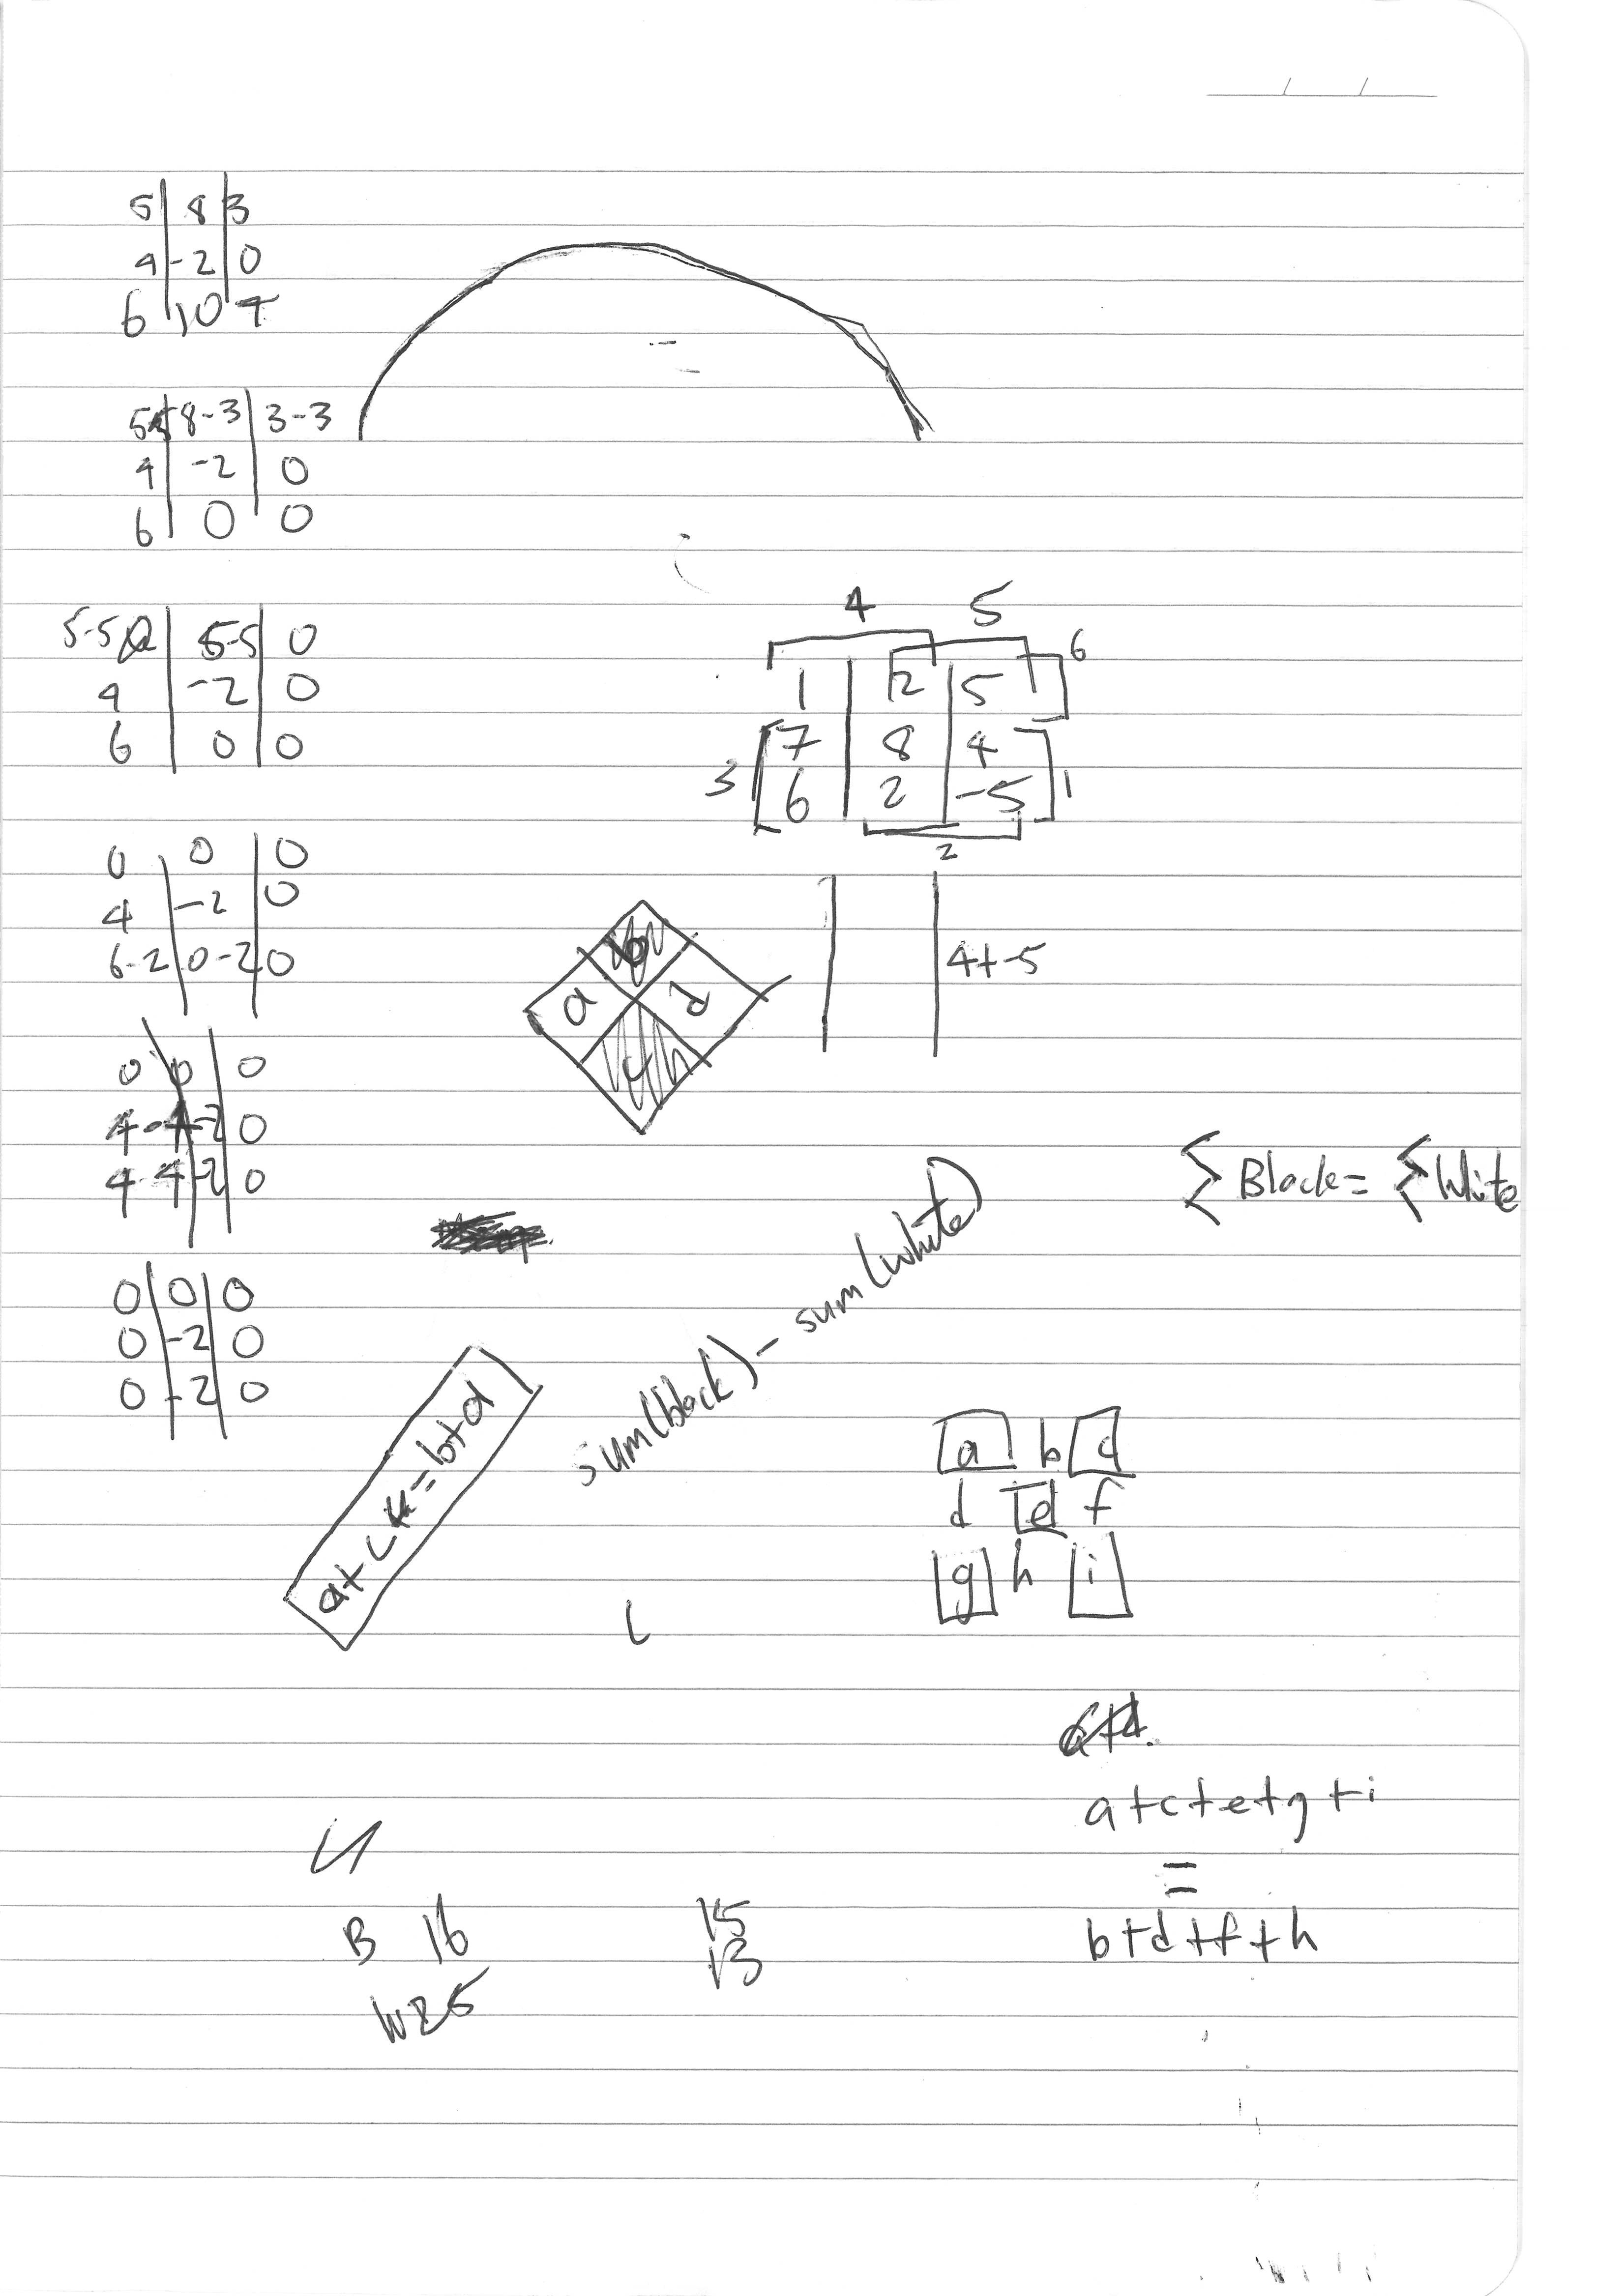 5 8 3
4 -2 0
6 10 7
5-5 8-3 3-3
4 -2 0
6 0 0
5-5 5-5 0
4 -2 0
6 0 0
0 0 0
4 -2 0
6-2 0-2 0
0 0 0
4-4 -2 0
4-4 -2 0
0 0 0
0 -2 0
0 -2 0
4 5
6
1 2 5
7 8 4
3 1
6 2 -5
2
4+-5
b
a d
c
Σ Black = Σ White
sum(black) - sum(white)
a+c = b+d
a b c
d e f
g h i
a+d.
a+c+e+g+i
=
b+d+f+h
B 16
W 25
15
13